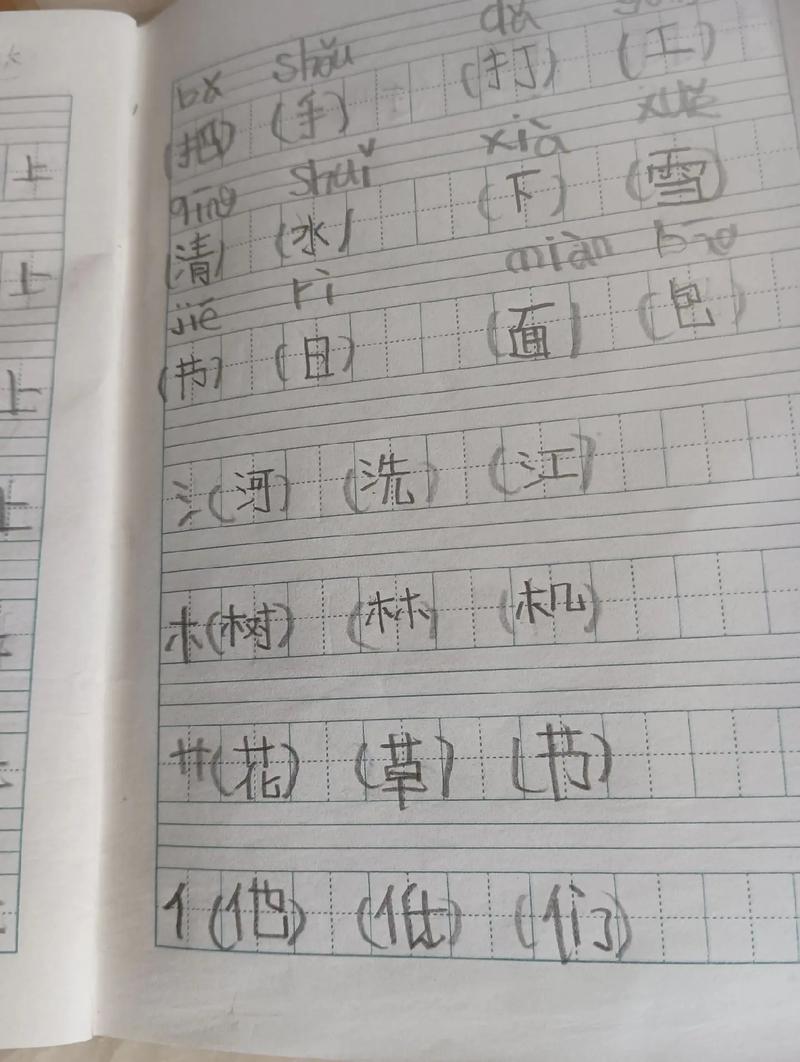 bǎ shǒu dǎ
(把) (手) (打) (工)
qīng shuǐ xià xuě
(清) (水) (下) (雪)
jié rì miàn bāo
(节) (日) (面) (包)
氵(河) (洗) (江)
木(树) (林) (机)
艹(花) (草) (节)
亻(他) (住) (们)
上
上
上
上